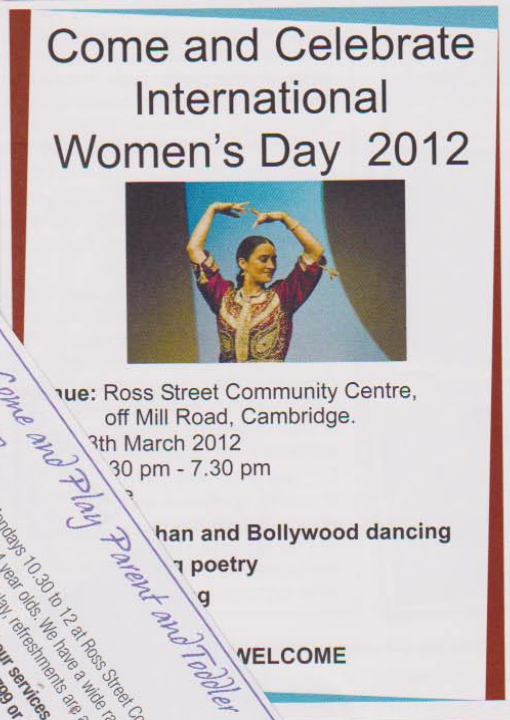 Come and Celebrate
International
Women's Day 2012
nue: Ross Street Community Centre,
off Mill Road, Cambridge.
8th March 2012
30 pm - 7.30 pm
han and Bollywood dancing
g poetry
g
WELCOME
Come and Play Parent and Toddler
ondays 10.30 to 12 at Ross Street Co
4 year olds. We have a wide ra
lay, refreshments are a
our services